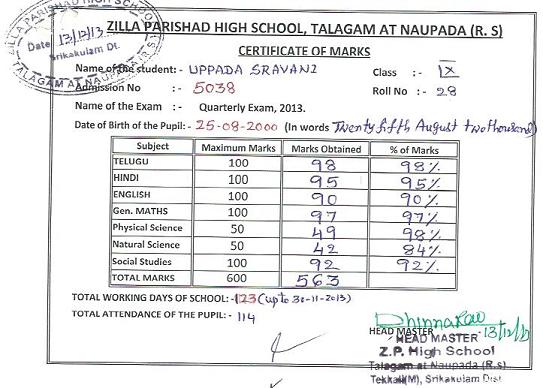 ZILLA PARISHAD HIGH SCHOOL
Date 13/12/13
Srikakulam Dt.
TALAGAM AT NAUPADA (R.S)
ZILLA PARISHAD HIGH SCHOOL, TALAGAM AT NAUPADA (R. S)
CERTIFICATE OF MARKS
Name of the student:- UPPADA SRAVANI Class :- IX
Admission No :- 5038 Roll No :- 28
Name of the Exam :- Quarterly Exam, 2013.
Date of Birth of the Pupil:- 25-08-2000 (In words Twenty fifth August two thousand)
Subject Maximum Marks Marks Obtained % of Marks
TELUGU 100 98 98%
HINDI 100 95 95%
ENGLISH 100 90 90%
Gen. MATHS 100 97 97%
Physical Science 50 49 98%
Natural Science 50 42 84%
Social Studies 100 92 92%
TOTAL MARKS 600 563
TOTAL WORKING DAYS OF SCHOOL:- 123 (up to 30-11-2013)
TOTAL ATTENDANCE OF THE PUPIL:- 114
HEAD MASTER 13/12/13
HEAD MASTER
Z.P. High School
Talagam at Naupada (R.s)
Tekkali(M), Srikakulam Dist.